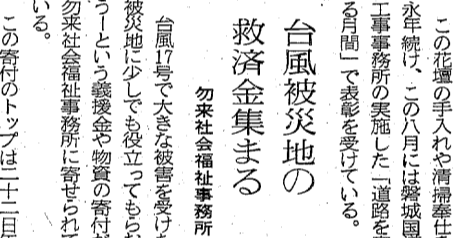 この花壇の手入れや清掃奉仕を
永年続け、この八月には磐城国道
工事事務所の実施した「道路を
る月間」で表彰を受けている。
台風被災地の
救済金集まる
勿来社会福祉事務所
台風17号で大きな被害を受け
被災地に少しでも役立ってもらお
うーという義援金や物資の寄付が
勿来社会福祉事務所に寄せられて
いる。
この寄付のトップは二十二日